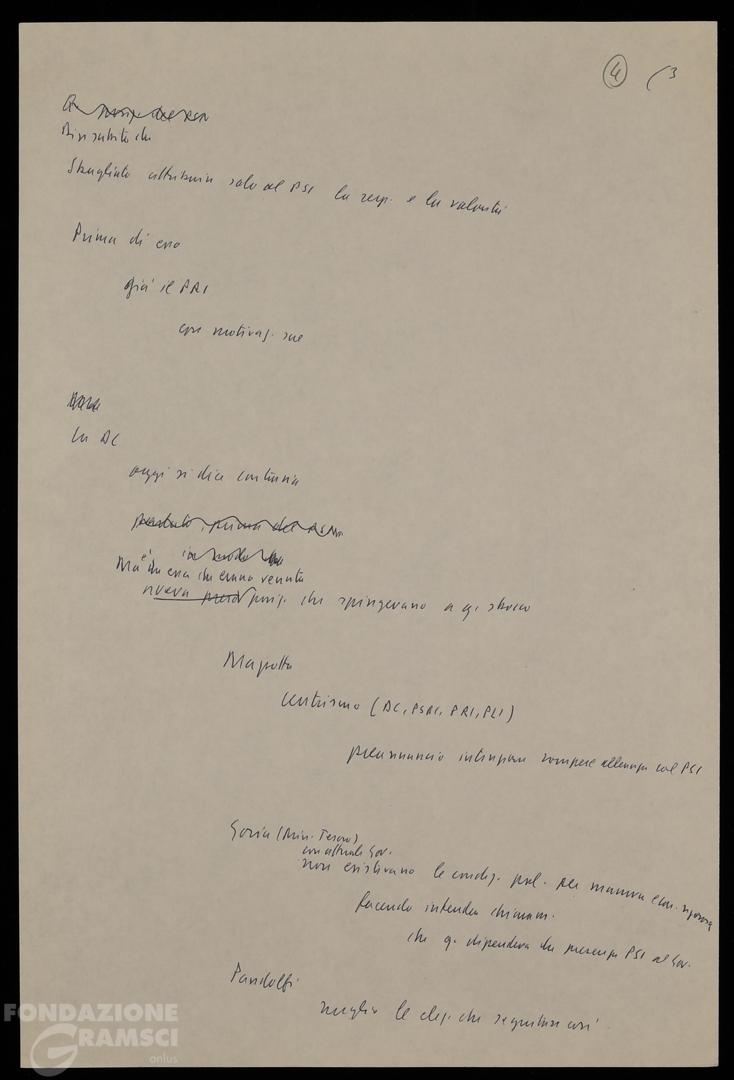 4 (3
Dirsi subito che
Sbagliato attribuire solo al PSI la resp. e la volontà
Prima di esso
già il PRI
con motivaz. sue
La DC
oggi si dice contraria
Ma è da essa che erano venute
posiz. che spingevano a q. sbocco
Mazzotta
centrismo (DC, PSDI, PRI, PLI)
preannuncio intenzione rompere alleanza col PSI
Goria (Min. Tesoro)
con attuale Gov.
non esistevano le condiz. pol. per manovra econ. rigorosa
facendo intendere chiaram.
che q. dipendeva da presenza PSI al Gov.
Pandolfi
meglio le elez. che seguitare così
FONDAZIONE
GRAMSCI
onlus